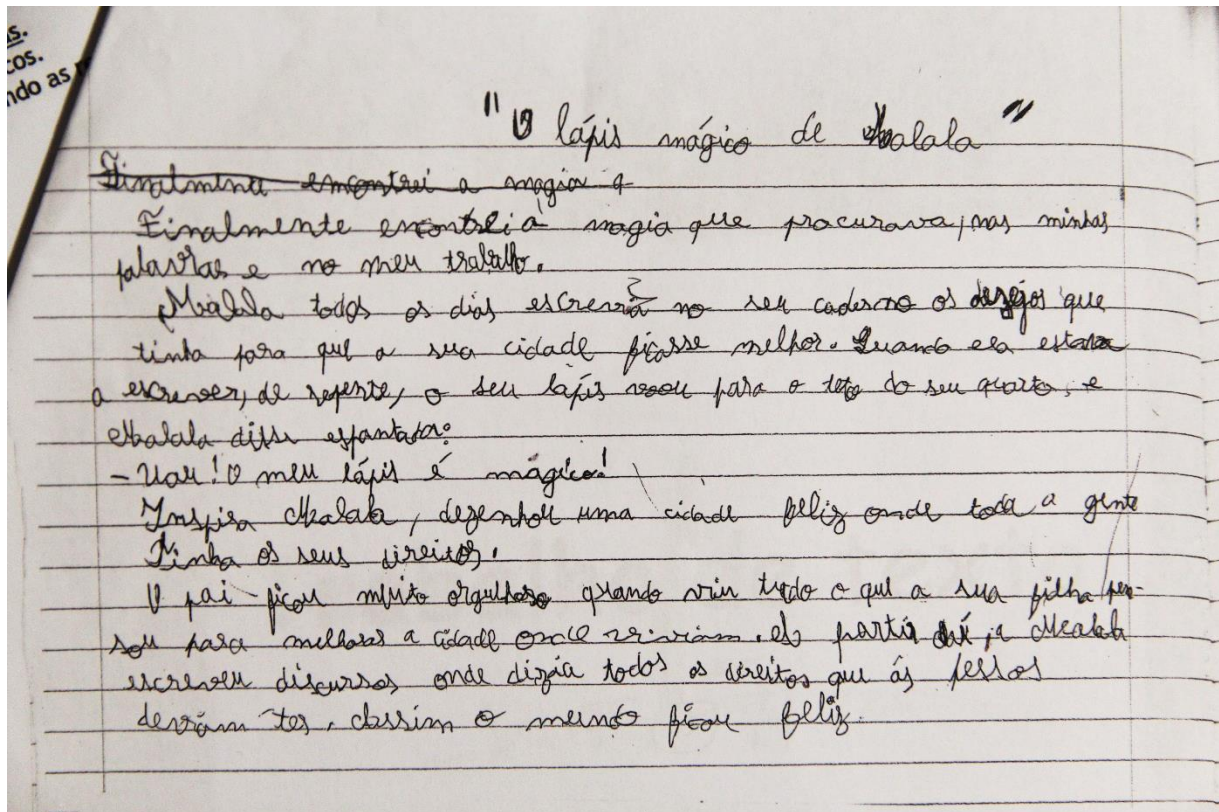 s.
cos.
ndo as
"O lápis mágico de Malala"
Finalmena encontrei a magia q
Finalmente encontrei a magia que procurava, nas minhas
palavras e no meu trabalho.
Malala todos os dias escrevia no seu caderno os desejos que
tinha para que a sua cidade ficasse melhor. Quando ela estava
a escrever, de repente, o seu lápis voou para o teto do seu quarto, e
Malala disse espantada:
- Uau! O meu lápis é mágico!
Inspira Malala, dezenhou uma cidade feliz onde toda a gente
tinha os seus direitos.
O pai ficou muito orgulhoso quando viu tudo o que a sua filha pen-
sou para melhorar a cidade onde viviam. A partir daí, a Malala
escreveu discursos onde dizia todos os direitos que ás pessoas
deviam ter. Assim o mundo ficou feliz.